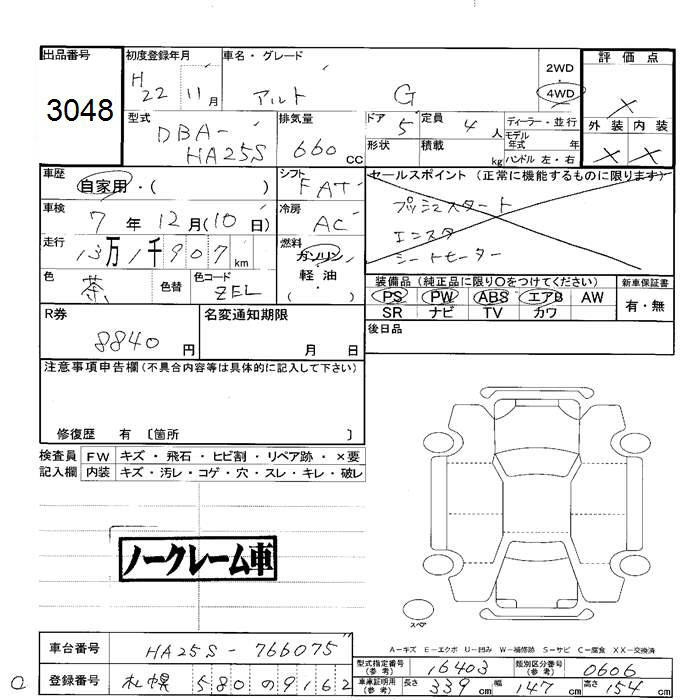 出品番号 初度登録年月 車名・グレード 2WD 評価点
3048 H22 11月 アルト G 4WD ×
外装 内装
× ×
型式 DBA-HA25S 排気量 660cc ドア 5 定員 4人 ディーラー・並行
形状 積載 kg モデル年式 年
ハンドル 左・右
車歴 自家用・( ) シフト FAT セールスポイント (正常に機能するものに限ります)
車検 7年12月(10日) 冷房 AC プッシュスタート
エンスタ
走行 13万1千907km 燃料 ガソリン シートヒーター
軽油
( )
色 茶 色替 色コード ZEL 装備品 (純正品に限り○をつけてください) 新車保証書
PS PW ABS エアB AW 有・無
SR ナビ TV カワ
R券 8840円 名変通知期限 月 日 後日品
注意事項申告欄 (不具合内容等は具体的に記入して下さい)
修復歴 有 〔箇所 〕
検査員 FW キズ・飛石・ヒビ割・リペア跡・×要
記入欄 内装 キズ・汚レ・コゲ・穴・スレ・キレ・破レ
ノークレーム車
スペア
A-キズ E-エクボ U-凹み W-補修跡 S-サビ C-腐食 XX-交換済
車台番号 HA25S-766075
型式指定番号(参考) 16403 類別区分番号(参考) 0606
登録番号 札幌 580 の 9162
車庫証明用(参考) 長さ 339cm 幅 147cm 高さ 154cm